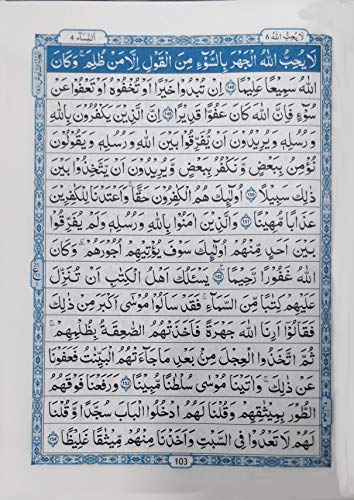 لَا يُحِبُّ اللّٰهُ ٦
اَلنِّسَآء ٤
لَا يُحِبُّ اللّٰهُ الْجَهْرَ بِالسُّوْٓءِ مِنَ الْقَوْلِ اِلَّا مَنْ ظُلِمَ ؕ وَكَانَ
اللّٰهُ سَمِيْعًا عَلِيْمًا ﴿١٤٨﴾ اِنْ تُبْدُوْا خَيْرًا اَوْ تُخْفُوْهُ اَوْ تَعْفُوْا عَنْ
سُوْٓءٍ فَاِنَّ اللّٰهَ كَانَ عَفُوًّا قَدِيْرًا ﴿١٤٩﴾ اِنَّ الَّذِيْنَ يَكْفُرُوْنَ بِاللّٰهِ
وَ رُسُلِهٖ وَ يُرِيْدُوْنَ اَنْ يُّفَرِّقُوْا بَيْنَ اللّٰهِ وَ رُسُلِهٖ وَ يَقُوْلُوْنَ
نُؤْمِنُ بِبَعْضٍ وَّ نَكْفُرُ بِبَعْضٍ وَّ يُرِيْدُوْنَ اَنْ يَّتَّخِذُوْا بَيْنَ
ذٰلِكَ سَبِيْلًا ﴿١٥٠﴾ اُولٰٓئِكَ هُمُ الْكٰفِرُوْنَ حَقًّا ۚ وَاَعْتَدْنَا لِلْكٰفِرِيْنَ
عَذَابًا مُّهِيْنًا ﴿١٥١﴾ وَالَّذِيْنَ اٰمَنُوْا بِاللّٰهِ وَرُسُلِهٖ وَلَمْ يُفَرِّقُوْا
بَيْنَ اَحَدٍ مِّنْهُمْ اُولٰٓئِكَ سَوْفَ يُؤْتِيْهِمْ اُجُوْرَهُمْ ؕ وَكَانَ
اللّٰهُ غَفُوْرًا رَّحِيْمًا ﴿١٥٢﴾ يَسْـَٔلُكَ اَهْلُ الْكِتٰبِ اَنْ تُنَزِّلَ
عَلَيْهِمْ كِتٰبًا مِّنَ السَّمَآءِ فَقَدْ سَاَلُوْا مُوْسٰٓى اَكْبَرَ مِنْ ذٰلِكَ
فَقَالُوْٓا اَرِنَا اللّٰهَ جَهْرَةً فَاَخَذَتْهُمُ الصّٰعِقَةُ بِظُلْمِهِمْ ۚ
ثُمَّ اتَّخَذُوا الْعِجْلَ مِنْۢ بَعْدِ مَا جَآءَتْهُمُ الْبَيِّنٰتُ فَعَفَوْنَا
عَنْ ذٰلِكَ ۚ وَاٰتَيْنَا مُوْسٰى سُلْطٰنًا مُّبِيْنًا ﴿١٥٣﴾ وَرَفَعْنَا فَوْقَهُمُ
الطُّوْرَ بِمِيْثَاقِهِمْ وَقُلْنَا لَهُمُ ادْخُلُوا الْبَابَ سُجَّدًا وَّ قُلْنَا
لَهُمْ لَا تَعْدُوْا فِى السَّبْتِ وَاَخَذْنَا مِنْهُمْ مِّيْثَاقًا غَلِيْظًا ﴿١٥٤﴾
103